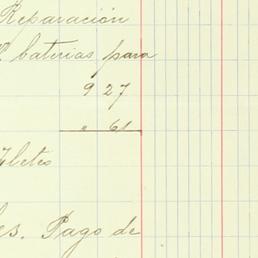 Reparación
baterias para
9 27
" 61
Fletes
es. Pago de